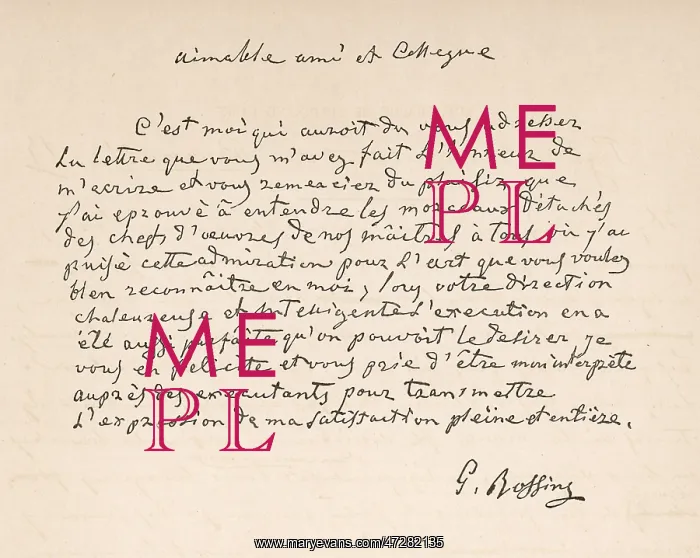 aimable ami et Collegue
C'est moi qui auroit du vous adresser
La lettre que vous m'avez fait L'honneur de
m'ecrire et vous remercier du plaisir que
j'ai eprouvé â entendre les morceaux détachés
des chefs d'oeuvres de nos mâitres à tous où j'ai
puisé cette admiration pour L'art que vous voulez
bien reconnâitre en moi, sous votre direction
chaleureuse et intelligente L'execution en a
été aussi parfaite qu'on pouvoit le desirer, je
vous en felicite et vous prie d'être mon interpréte
auprès des executants pour transmettre
L'expression de ma satisfaction pleine et entière.
G. Rossini
ME
PL
ME
PL
www.maryevans.com/47282195